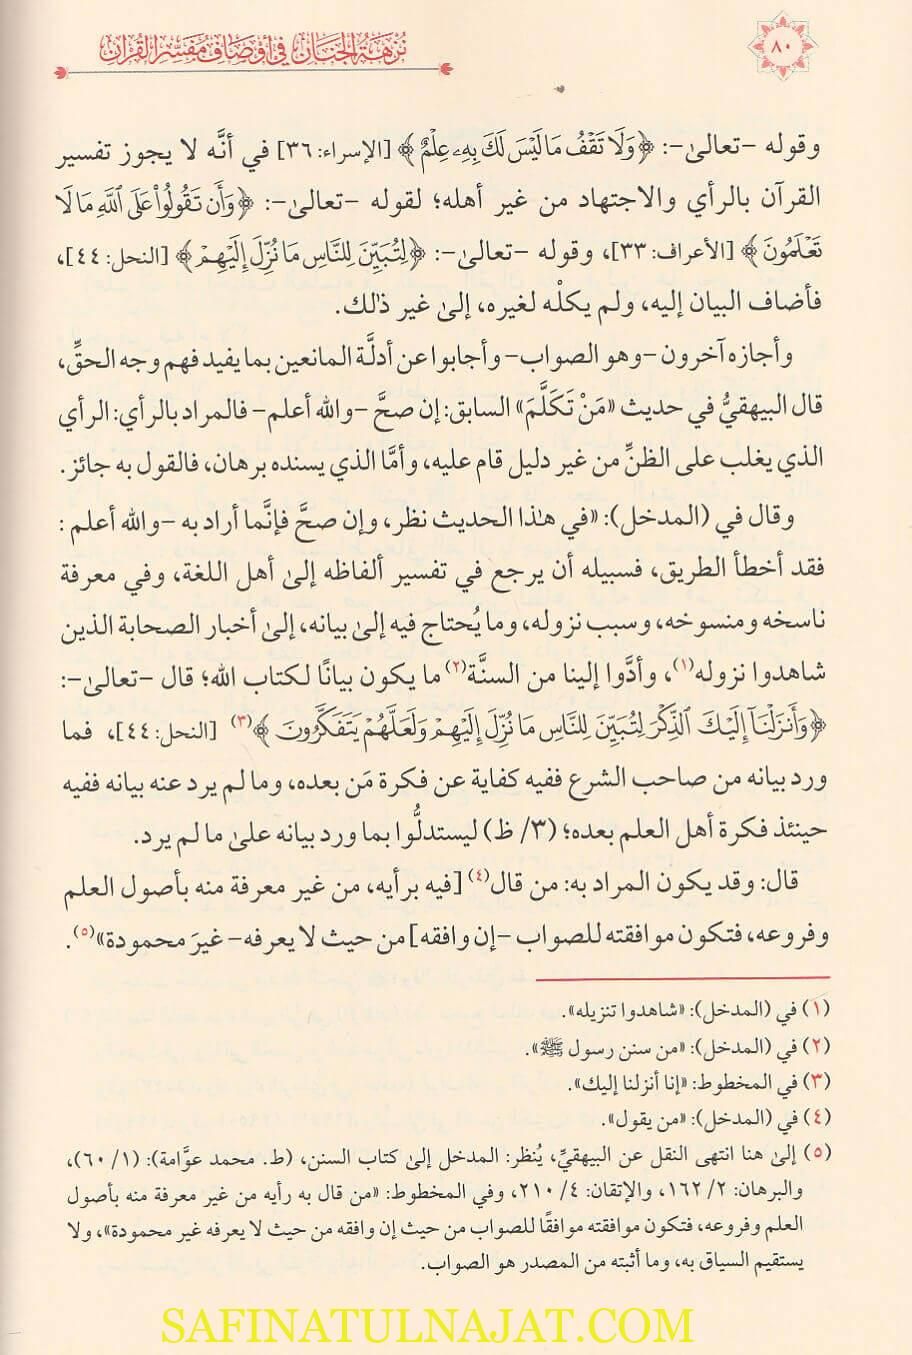 ٨٠
نزهة الجنان في أوصاف مفسر القرآن
وقوله -تعالىٰ-: ﴿وَلَا تَقْفُ مَا لَيْسَ لَكَ بِهِۦ عِلْمٌ﴾ [الإسراء: ٣٦] في أنَّه لا يجوز تفسير
القرآن بالرأي والاجتهاد من غير أهله؛ لقوله -تعالىٰ-: ﴿وَأَن تَقُولُوا۟ عَلَى ٱللَّهِ مَا لَا
تَعْلَمُونَ﴾ [الأعراف: ٣٣]، وقوله -تعالىٰ-: ﴿لِتُبَيِّنَ لِلنَّاسِ مَا نُزِّلَ إِلَيْهِمْ﴾ [النحل: ٤٤]،
فأضاف البيان إليه، ولم يكلْه لغيره، إلىٰ غير ذٰلك.
وأجازه آخرون -وهو الصواب- وأجابوا عن أدلَّة المانعين بما يفيد فهم وجه الحقِّ،
قال البيهقيُّ في حديث «مَنْ تَكَلَّمَ» السابق: إن صحَّ -والله أعلم- فالمراد بالرأي: الرأي
الذي يغلب على الظنِّ من غير دليل قام عليه، وأمَّا الذي يسنده برهان، فالقول به جائز.
وقال في (المدخل): «في هٰذا الحديث نظر، وإن صحَّ فإنَّما أراد به -والله أعلم:
فقد أخطأ الطريق، فسبيله أن يرجع في تفسير ألفاظه إلىٰ أهل اللغة، وفي معرفة
ناسخه ومنسوخه، وسبب نزوله، وما يُحتاج فيه إلىٰ بيانه، إلىٰ أخبار الصحابة الذين
شاهدوا نزوله(١)، وأدَّوا إلينا من السنَّة(٢) ما يكون بيانًا لكتاب الله؛ قال -تعالىٰ-:
﴿وَأَنزَلْنَآ إِلَيْكَ ٱلذِّكْرَ لِتُبَيِّنَ لِلنَّاسِ مَا نُزِّلَ إِلَيْهِمْ وَلَعَلَّهُمْ يَتَفَكَّرُونَ﴾(٣) [النحل: ٤٤]، فما
ورد بيانه من صاحب الشرع ففيه كفاية عن فكرة مَن بعده، وما لم يرد عنه بيانه ففيه
حينئذ فكرة أهل العلم بعده؛ (٣/ ظ) ليستدلُّوا بما ورد بيانه علىٰ ما لم يرد.
قال: وقد يكون المراد به: من قال(٤) [فيه برأيه، من غير معرفة منه بأصول العلم
وفروعه، فتكون موافقته للصواب -إن وافقه] من حيث لا يعرفه- غيرَ محمودة»(٥).
(١) في (المدخل): «شاهدوا تنزيله».
(٢) في (المدخل): «من سنن رسول ﷺ».
(٣) في المخطوط: «إنا أنزلنا إليك».
(٤) في (المدخل): «من يقول».
(٥) إلىٰ هنا انتهى النقل عن البيهقيِّ، يُنظر: المدخل إلىٰ كتاب السنن، (ط. محمد عوَّامة): (١/ ٦٠)،
والبرهان: ٢/ ١٦٢، والإتقان: ٤/ ٢١٠، وفي المخطوط: «من قال به رأيه من غير معرفة منه بأصول
العلم وفروعه، فتكون موافقته موافقًا للصواب من حيث إن وافقه من حيث لا يعرفه غير محمودة»، ولا
يستقيم السياق به، وما أثبته من المصدر هو الصواب.
SAFINATULNAJAT.COM